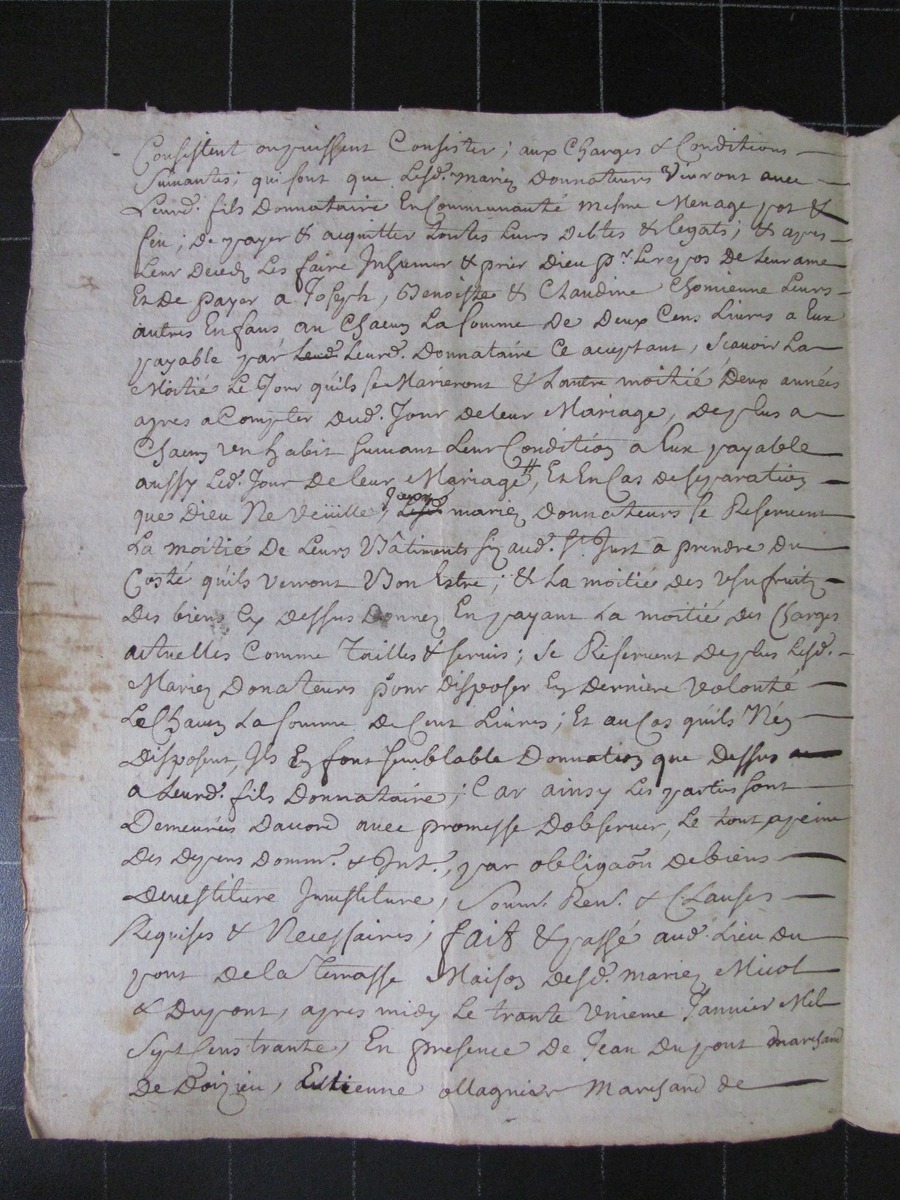 Consistent ou puissent Consister; aux Charges & Conditions
Suivantes; qui sont que Lesd. mariez Donnateurs Vivront avec
Leurd. fils Donnataire En Communauté mesme Menage pot &
feu; De payer & acquitter toutes Leurs Debtes & legats; & apres
Leur Decedz Les faire Inhumer & prier Dieu pr. Le repos De Leur ame
Et De payer a Joseph, Benoiste & Claudine Chomienne Leurs
autres Enfans au Chacun La somme De Deux Cens Livres a Eux
payable par Leurd. Donnataire Ce aceptant, Scavoir La
Moitié Le Jour quils se Marieront & Lautre moitié Deux années
apres a Compter Dud. Jour De leur Mariage, De plus a
Chacun Un habit suivant Leur Condition a Eux payable
aussy Led. Jour De leur Mariage, Et En Cas De separation
que Dieu Ne Veüille, mariez Donnateurs se Reservent
La moitié De Leurs Bâtiments sy aud. St. Just a prendre Du
Costé quils verront Bon Estre; & La moitié Des Usufruitz
Des biens Cy Dessus Donnez En payant La moitié Des Charges
actuelles Comme Tailles & servis; Se Reservent De plus Lesd.
Mariez Donateurs pour Disposer En Derniere Volonté
Le Chacun La somme De Cent Livres; Et au Cas quils N'en
Disposent, Ils En font semblable Donnation que Dessus
a Leurd. fils Donnataire; Car ainsy Les parties sont
Demeurées Dacord avec promesse Dobserver, Le tout a peine
Des Depens Domm. & Int., par obligaōn De biens
Devestiture Investiture, Soum. Ren. & Clauses
Requises & Necessaires; fait & passé aud. Lieu Du
pont De la Terrasse Maison Desd. mariez Micol
& Dupont, apres midy Le trante Unieme Janvier Mil
Sept Cens trante, En presence De Jean Dupont marchand
De Doizieu, Estienne ollagnier Marchand de